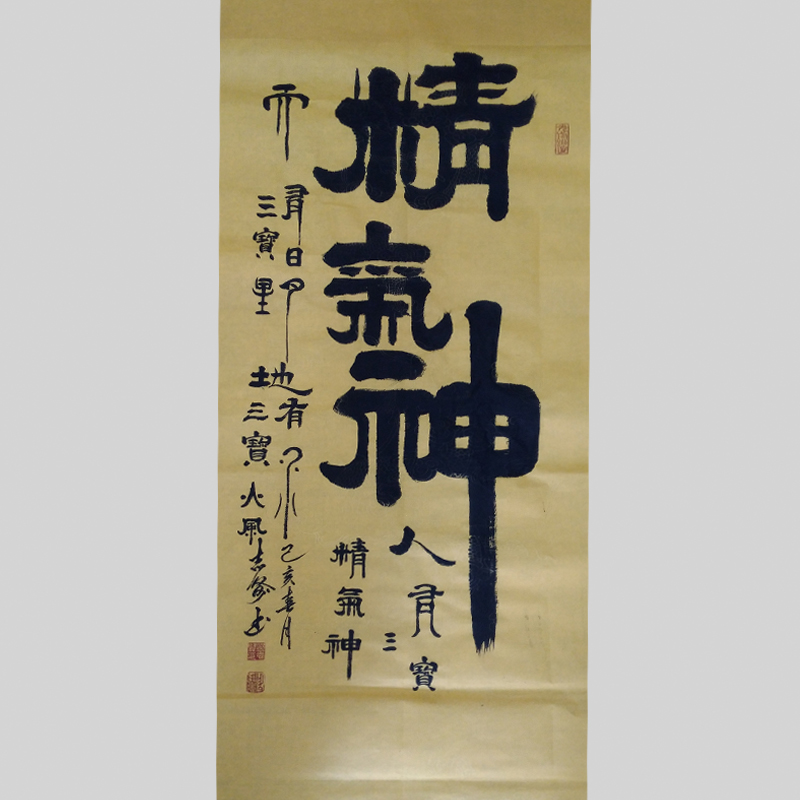 精氣神
天有三寶日月星
地有三寶水火風
人有三寶
精氣神
己亥春月
书